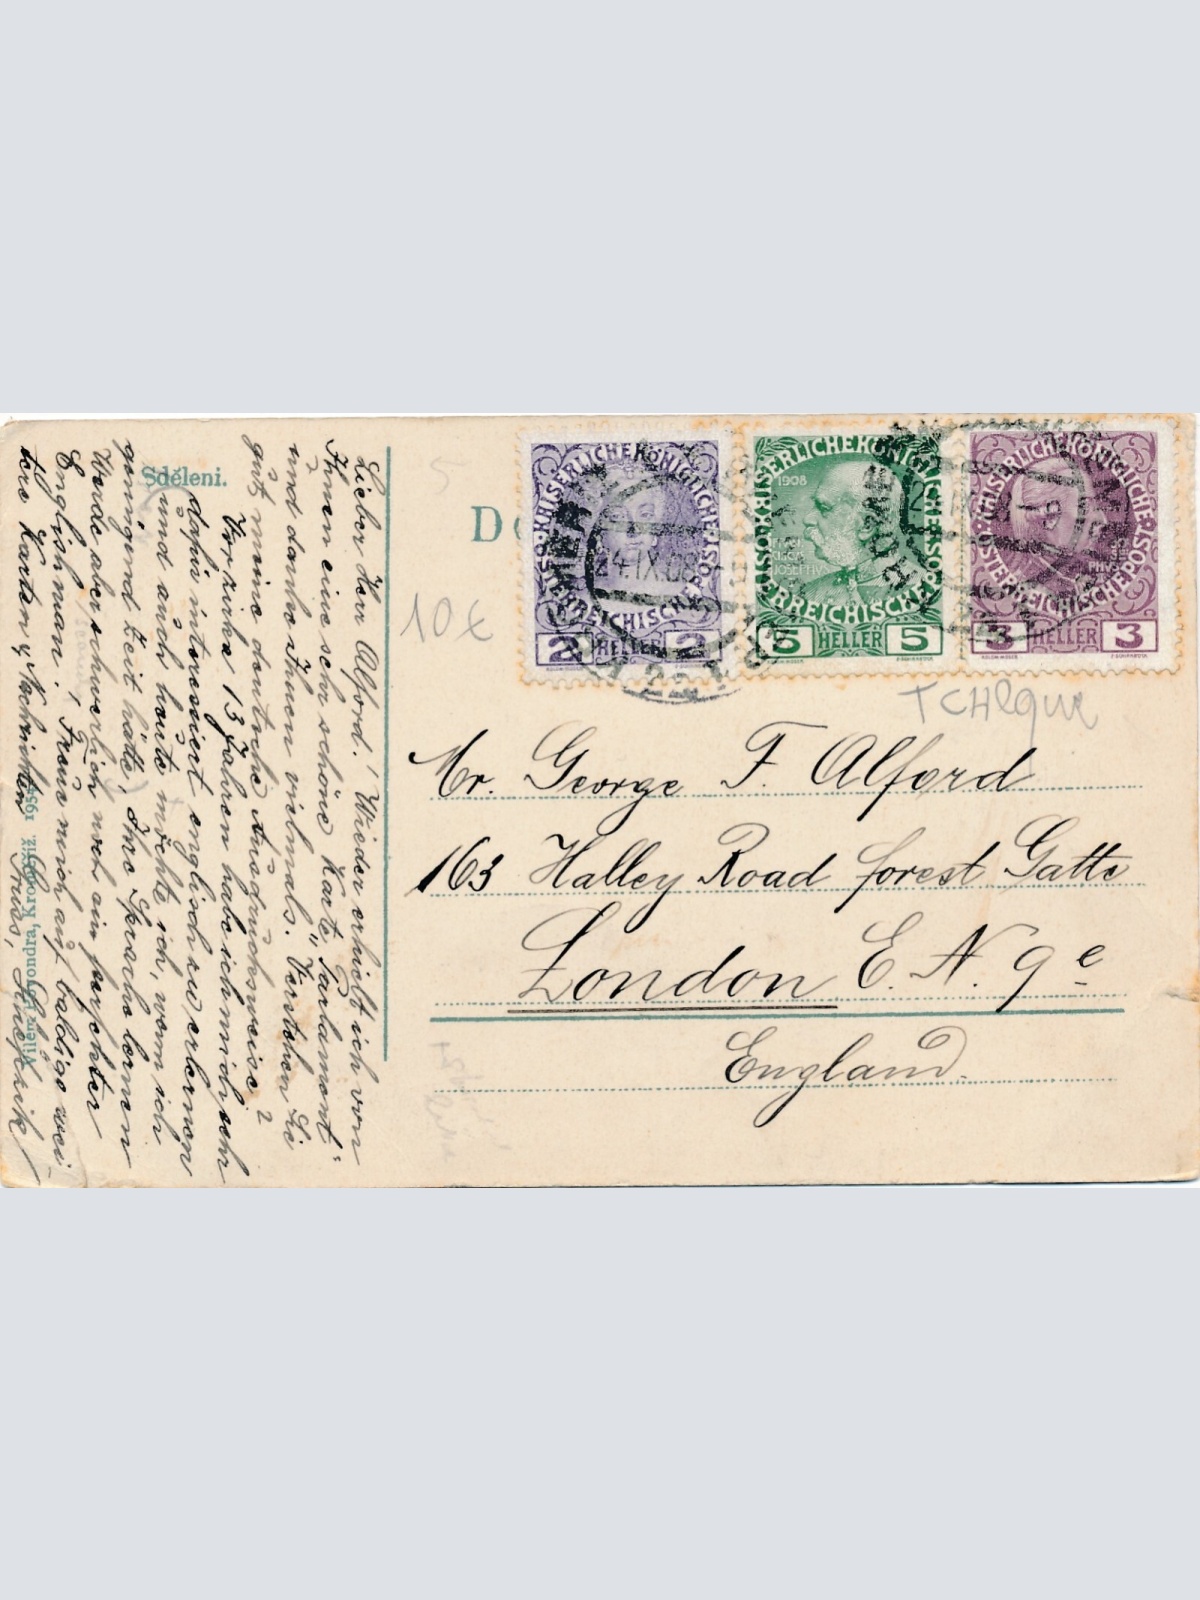 Sdělení.
Lieber Herr Alford! Wieder erhielt ich von
Ihnen eine sehr schöne Karte "Parlament"
und danke Ihnen vielmals. Verstehen Sie
gut meine deutsche Ausdrucksweise?
Vor zirka 13 Jahren habe ich mich sehr
dafür interessiert englisch zu erlernen
und auch heute möchte ich, wenn ich
genügend Zeit hätte, Ihre Sprache lernen
Werde aber schwerlich noch ein perfekter
Englishman! Freue mich auf baldige wei-
tere Karten u. Nachrichten Gruss,
Vilém Povondra, Kroměříž.
10 €
KAISERLICHE KÖNIGLICHE ÖSTERREICHISCHE POST
2 HELLER 2
24.IX.08
KAISERLICHE KÖNIGLICHE ÖSTERREICHISCHE POST
1908
5 HELLER 5
KAISERLICHE KÖNIGLICHE ÖSTERREICHISCHE POST
3 HELLER 3
TCHeque
Mr. George F. Alford
163 Halley Road forest Gatte
London E. N. 9e
England.